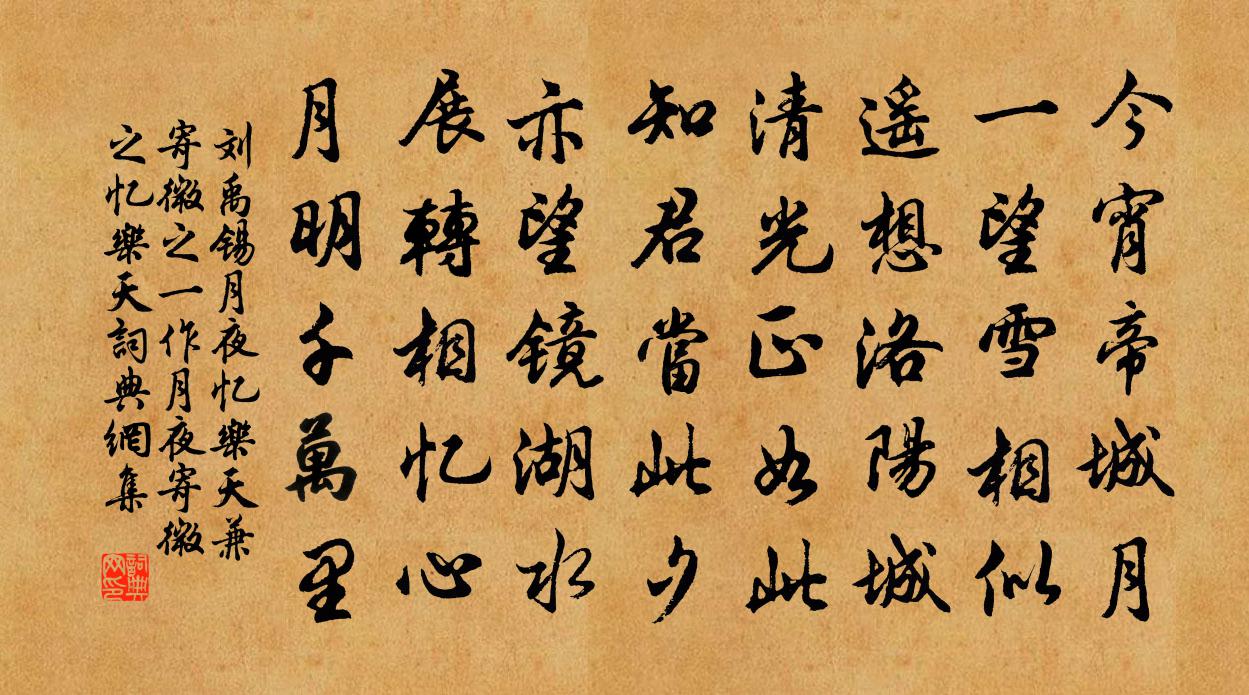 今宵帝城月
一望雪相似
遥想洛陽城
清光正如此
知君當此夕
亦望镜湖水
展轉相忆心
月明千萬里
刘禹锡月夜忆樂天兼
寄微之一作月夜寄微
之忆樂天詞典網集
詞典
网印